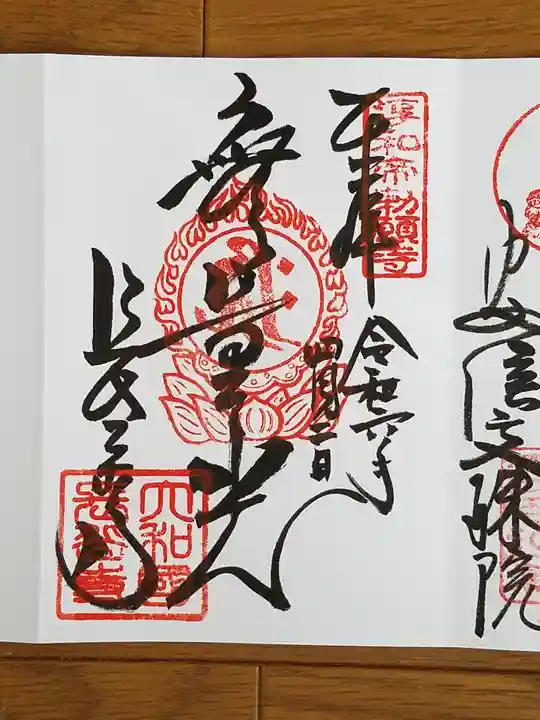 文殊院
淳和帝勅願寺
奉拝
令和六年
四月二日
無量光
長岳寺
大和国
長岳寺